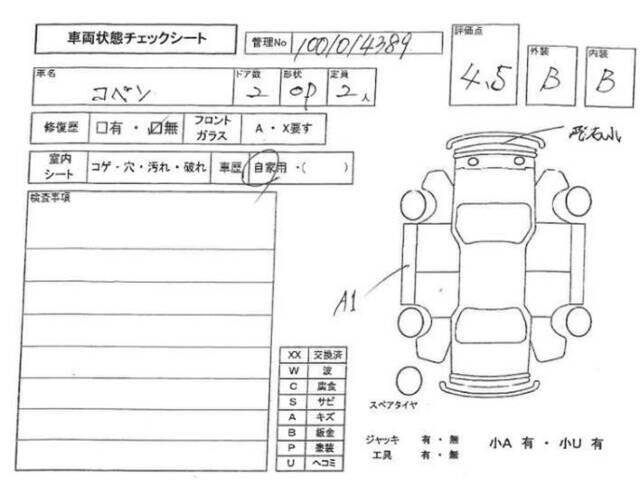 車両状態チェックシート
管理No 1001014389
評価点 4.5
外装 B
内装 B
車名 コペン
ドア数 2
形状 OP
定員 2人
修復歴 □有・☑無
フロントガラス A・X要す
室内シート コゲ・穴・汚れ・破れ
車歴 自家用・( )
検査事項
飛石小
A1
XX 交換済
W 波
C 腐食
S サビ
A キズ
B 鈑金
P 塗装
U ヘコミ
スペアタイヤ
ジャッキ 有・無
工具 有・無
小A 有・小U 有